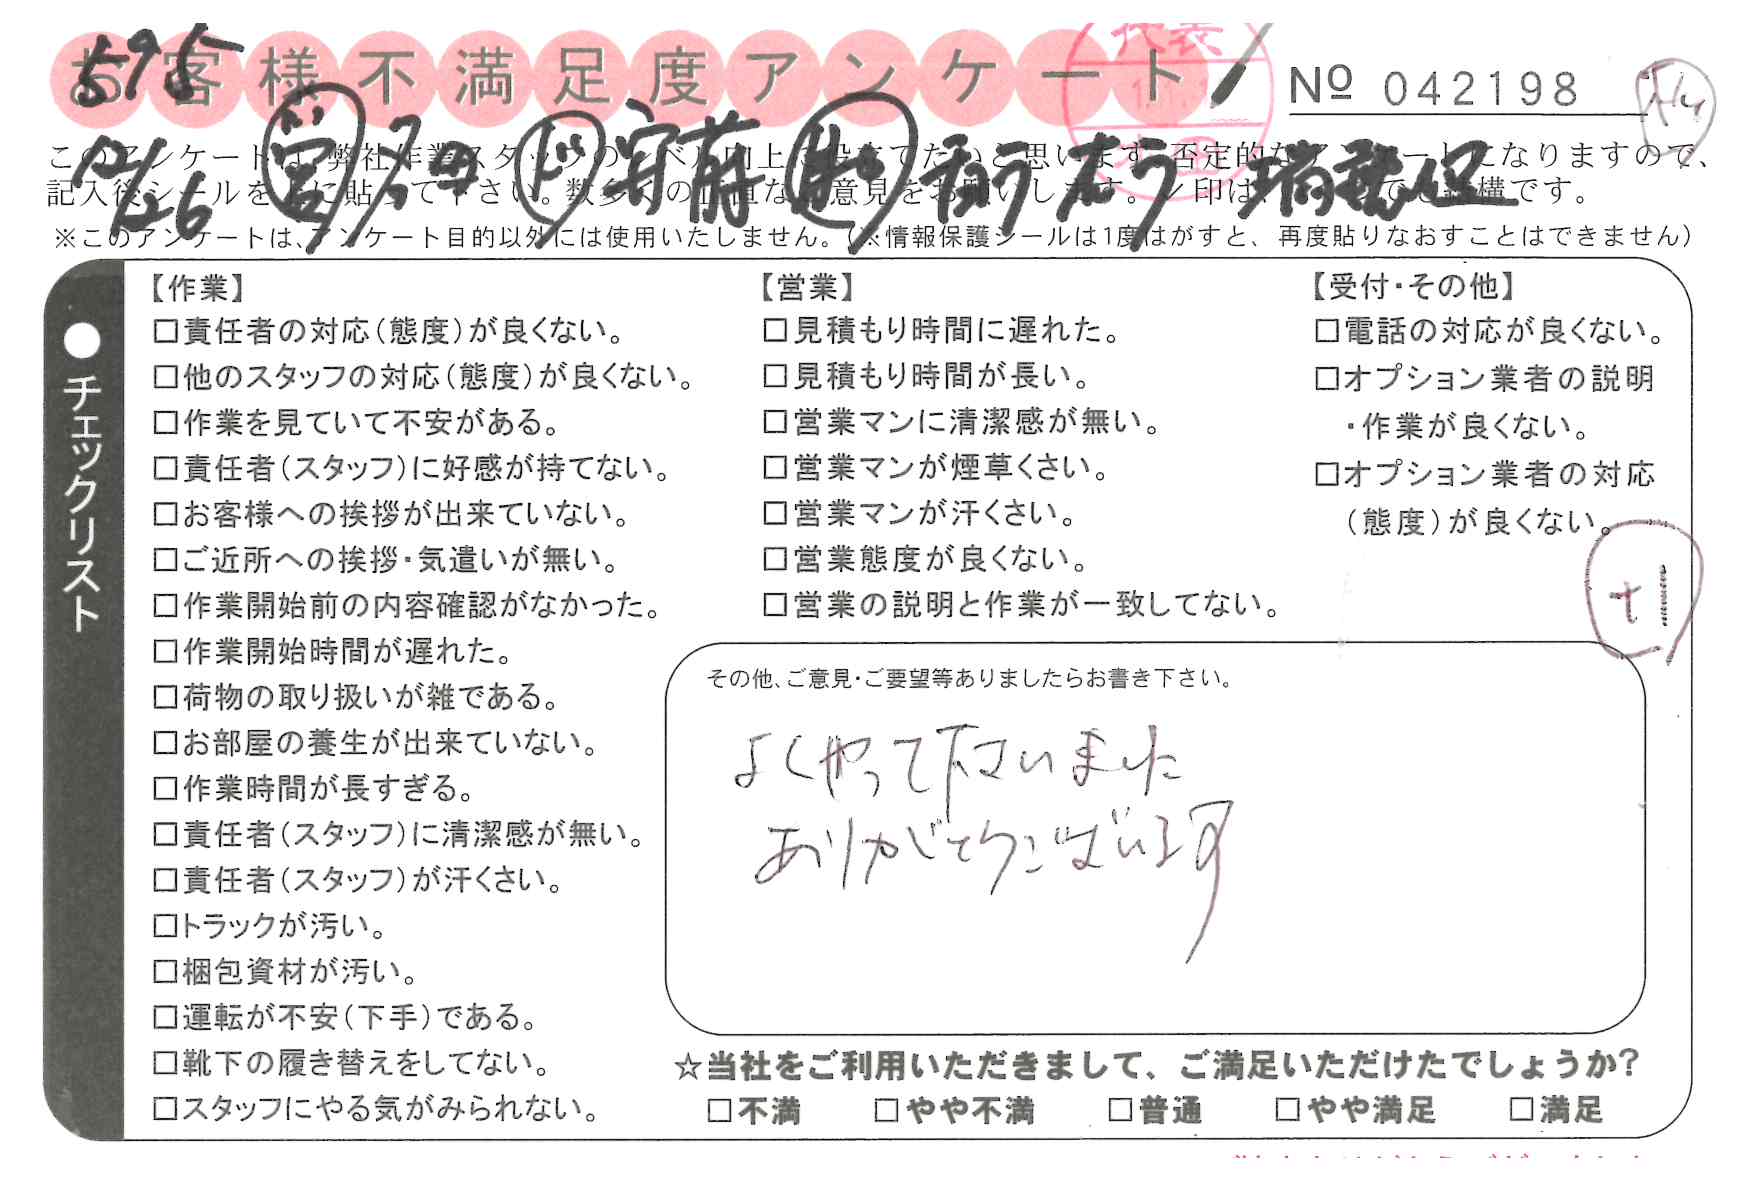 お客様不満足度アンケート
Nº 042198
598
12/26
このアンケートは、弊社作業スタッフのレベル向上に役立てたいと思います。否定的なアンケートになりますので、
記入後シールを上に貼って下さい。数多くの正直なご意見をお願いします。レ印は、いくつでも結構です。
※このアンケートは、アンケート目的以外には使用いたしません。(※情報保護シールは1度はがすと、再度貼りなおすことはできません)
●チェックリスト
【作業】
□責任者の対応(態度)が良くない。
□他のスタッフの対応(態度)が良くない。
□作業を見ていて不安がある。
□責任者(スタッフ)に好感が持てない。
□お客様への挨拶が出来ていない。
□ご近所への挨拶・気遣いが無い。
□作業開始前の内容確認がなかった。
□作業開始時間が遅れた。
□荷物の取り扱いが雑である。
□お部屋の養生が出来ていない。
□作業時間が長すぎる。
□責任者(スタッフ)に清潔感が無い。
□責任者(スタッフ)が汗くさい。
□トラックが汚い。
□梱包資材が汚い。
□運転が不安(下手)である。
□靴下の履き替えをしてない。
□スタッフにやる気がみられない。
【営業】
□見積もり時間に遅れた。
□見積もり時間が長い。
□営業マンに清潔感が無い。
□営業マンが煙草くさい。
□営業マンが汗くさい。
□営業態度が良くない。
□営業の説明と作業が一致してない。
【受付・その他】
□電話の対応が良くない。
□オプション業者の説明
・作業が良くない。
□オプション業者の対応
(態度)が良くない。
その他、ご意見・ご要望等ありましたらお書き下さい。
よくやって下さいました
ありがとうございます
☆当社をご利用いただきまして、ご満足いただけたでしょうか?
□不満 □やや不満 □普通 □やや満足 □満足